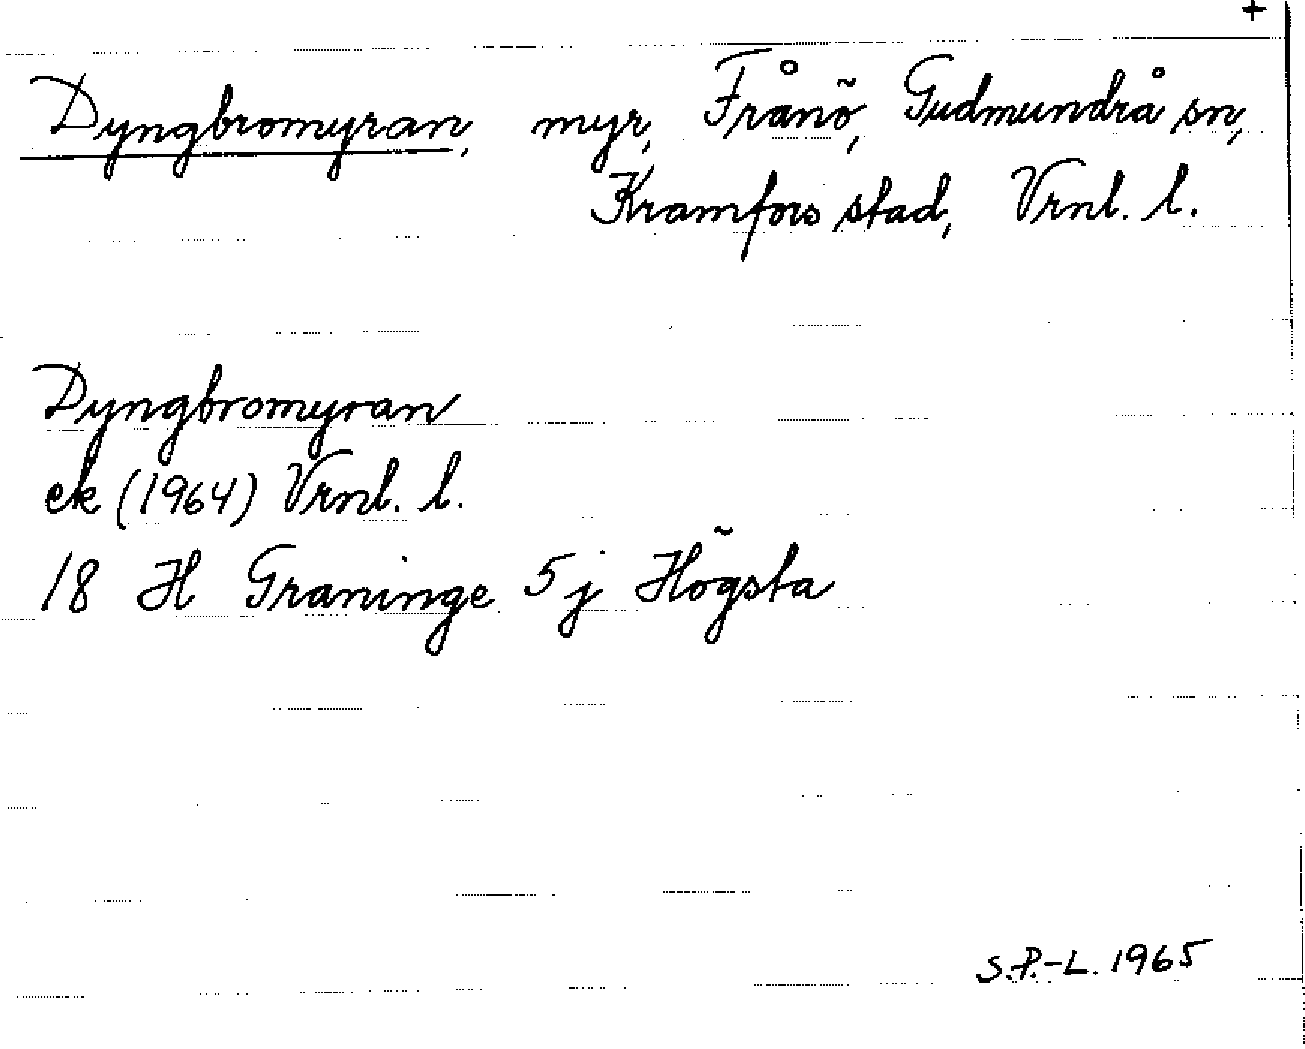 +
Dyngbromyran, myr, Frånö, Gudmundrå sn,
Kramfors stad, Vrnl. l.
Dyngbromyran
ek (1964) Vrnl. l.
18 H Graninge 5 j Högsta
S.P.-L. 1965